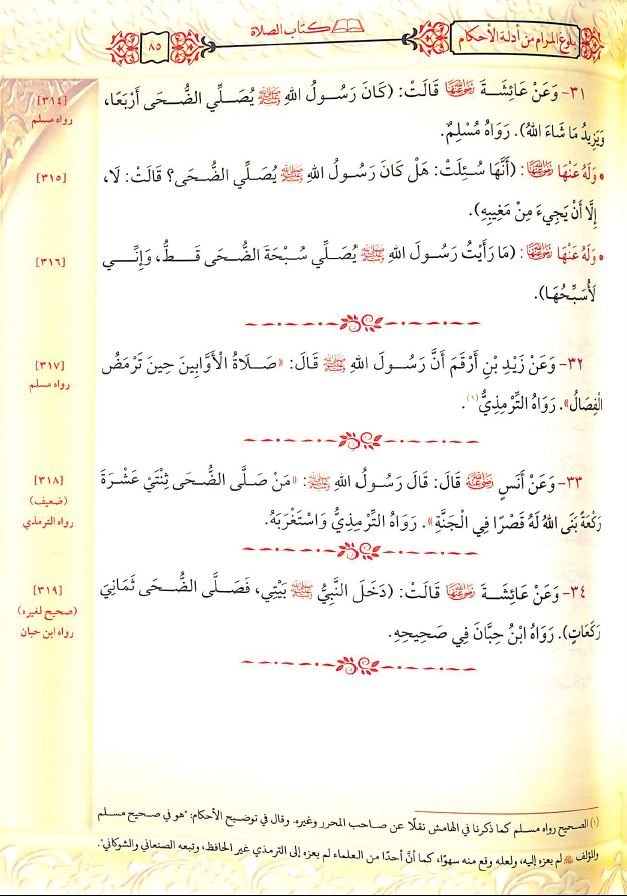 بلوغ المرام من أدلة الأحكام
كتاب الصلاة
٨٥
٣١- وَعَنْ عَائِشَةَ رَضِيَ اللهُ عَنْهَا قَالَتْ: (كَانَ رَسُولُ اللهِ ﷺ يُصَلِّي الضُّحَى أَرْبَعًا،
وَيَزِيدُ مَا شَاءَ اللهُ). رَوَاهُ مُسْلِمٌ.
[٣١٤]
رواه مسلم
• وَلَهُ عَنْهَا رَضِيَ اللهُ عَنْهَا: (أَنَّهَا سُئِلَتْ: هَلْ كَانَ رَسُولُ اللهِ ﷺ يُصَلِّي الضُّحَى؟ قَالَتْ: لَا،
إِلَّا أَنْ يَجِيءَ مِنْ مَغِيبِهِ).
[٣١٥]
• وَلَهُ عَنْهَا رَضِيَ اللهُ عَنْهَا: (مَا رَأَيْتُ رَسُولَ اللهِ ﷺ يُصَلِّي سُبْحَةَ الضُّحَى قَطُّ، وَإِنِّي
لَأُسَبِّحُهَا).
[٣١٦]
٣٢- وَعَنْ زَيْدِ بْنِ أَرْقَمَ أَنَّ رَسُولَ اللهِ ﷺ قَالَ: «صَلَاةُ الْأَوَّابِينَ حِينَ تَرْمَضُ
الْفِصَالُ». رَوَاهُ التِّرْمِذِيُّ(١).
[٣١٧]
رواه مسلم
٣٣- وَعَنْ أَنَسٍ رَضِيَ اللهُ عَنْهُ قَالَ: قَالَ رَسُولُ اللهِ ﷺ: «مَنْ صَلَّى الضُّحَى ثِنْتَيْ عَشْرَةَ
رَكْعَةً بَنَى اللهُ لَهُ قَصْرًا فِي الْجَنَّةِ». رَوَاهُ التِّرْمِذِيُّ وَاسْتَغْرَبَهُ.
[٣١٨]
(ضعيف)
رواه الترمذي
٣٤- وَعَنْ عَائِشَةَ رَضِيَ اللهُ عَنْهَا قَالَتْ: (دَخَلَ النَّبِيُّ ﷺ بَيْتِي، فَصَلَّى الضُّحَى ثَمَانِيَ
رَكَعَاتٍ). رَوَاهُ ابْنُ حِبَّانَ فِي صَحِيحِهِ.
[٣١٩]
(صحيح لغيره)
رواه ابن حبان
(١) الصحيح رواه مسلم كما ذكرنا في الهامش نقلًا عن صاحب المحرر وغيره. وقال في توضيح الأحكام: "هو في صحيح مسلم
والمؤلف رحمه الله لم يعزه إليه، ولعله وقع منه سهوًا، كما أنَّ أحدًا من العلماء لم يعزه إلى الترمذي غير الحافظ، وتبعه الصنعاني والشوكاني".